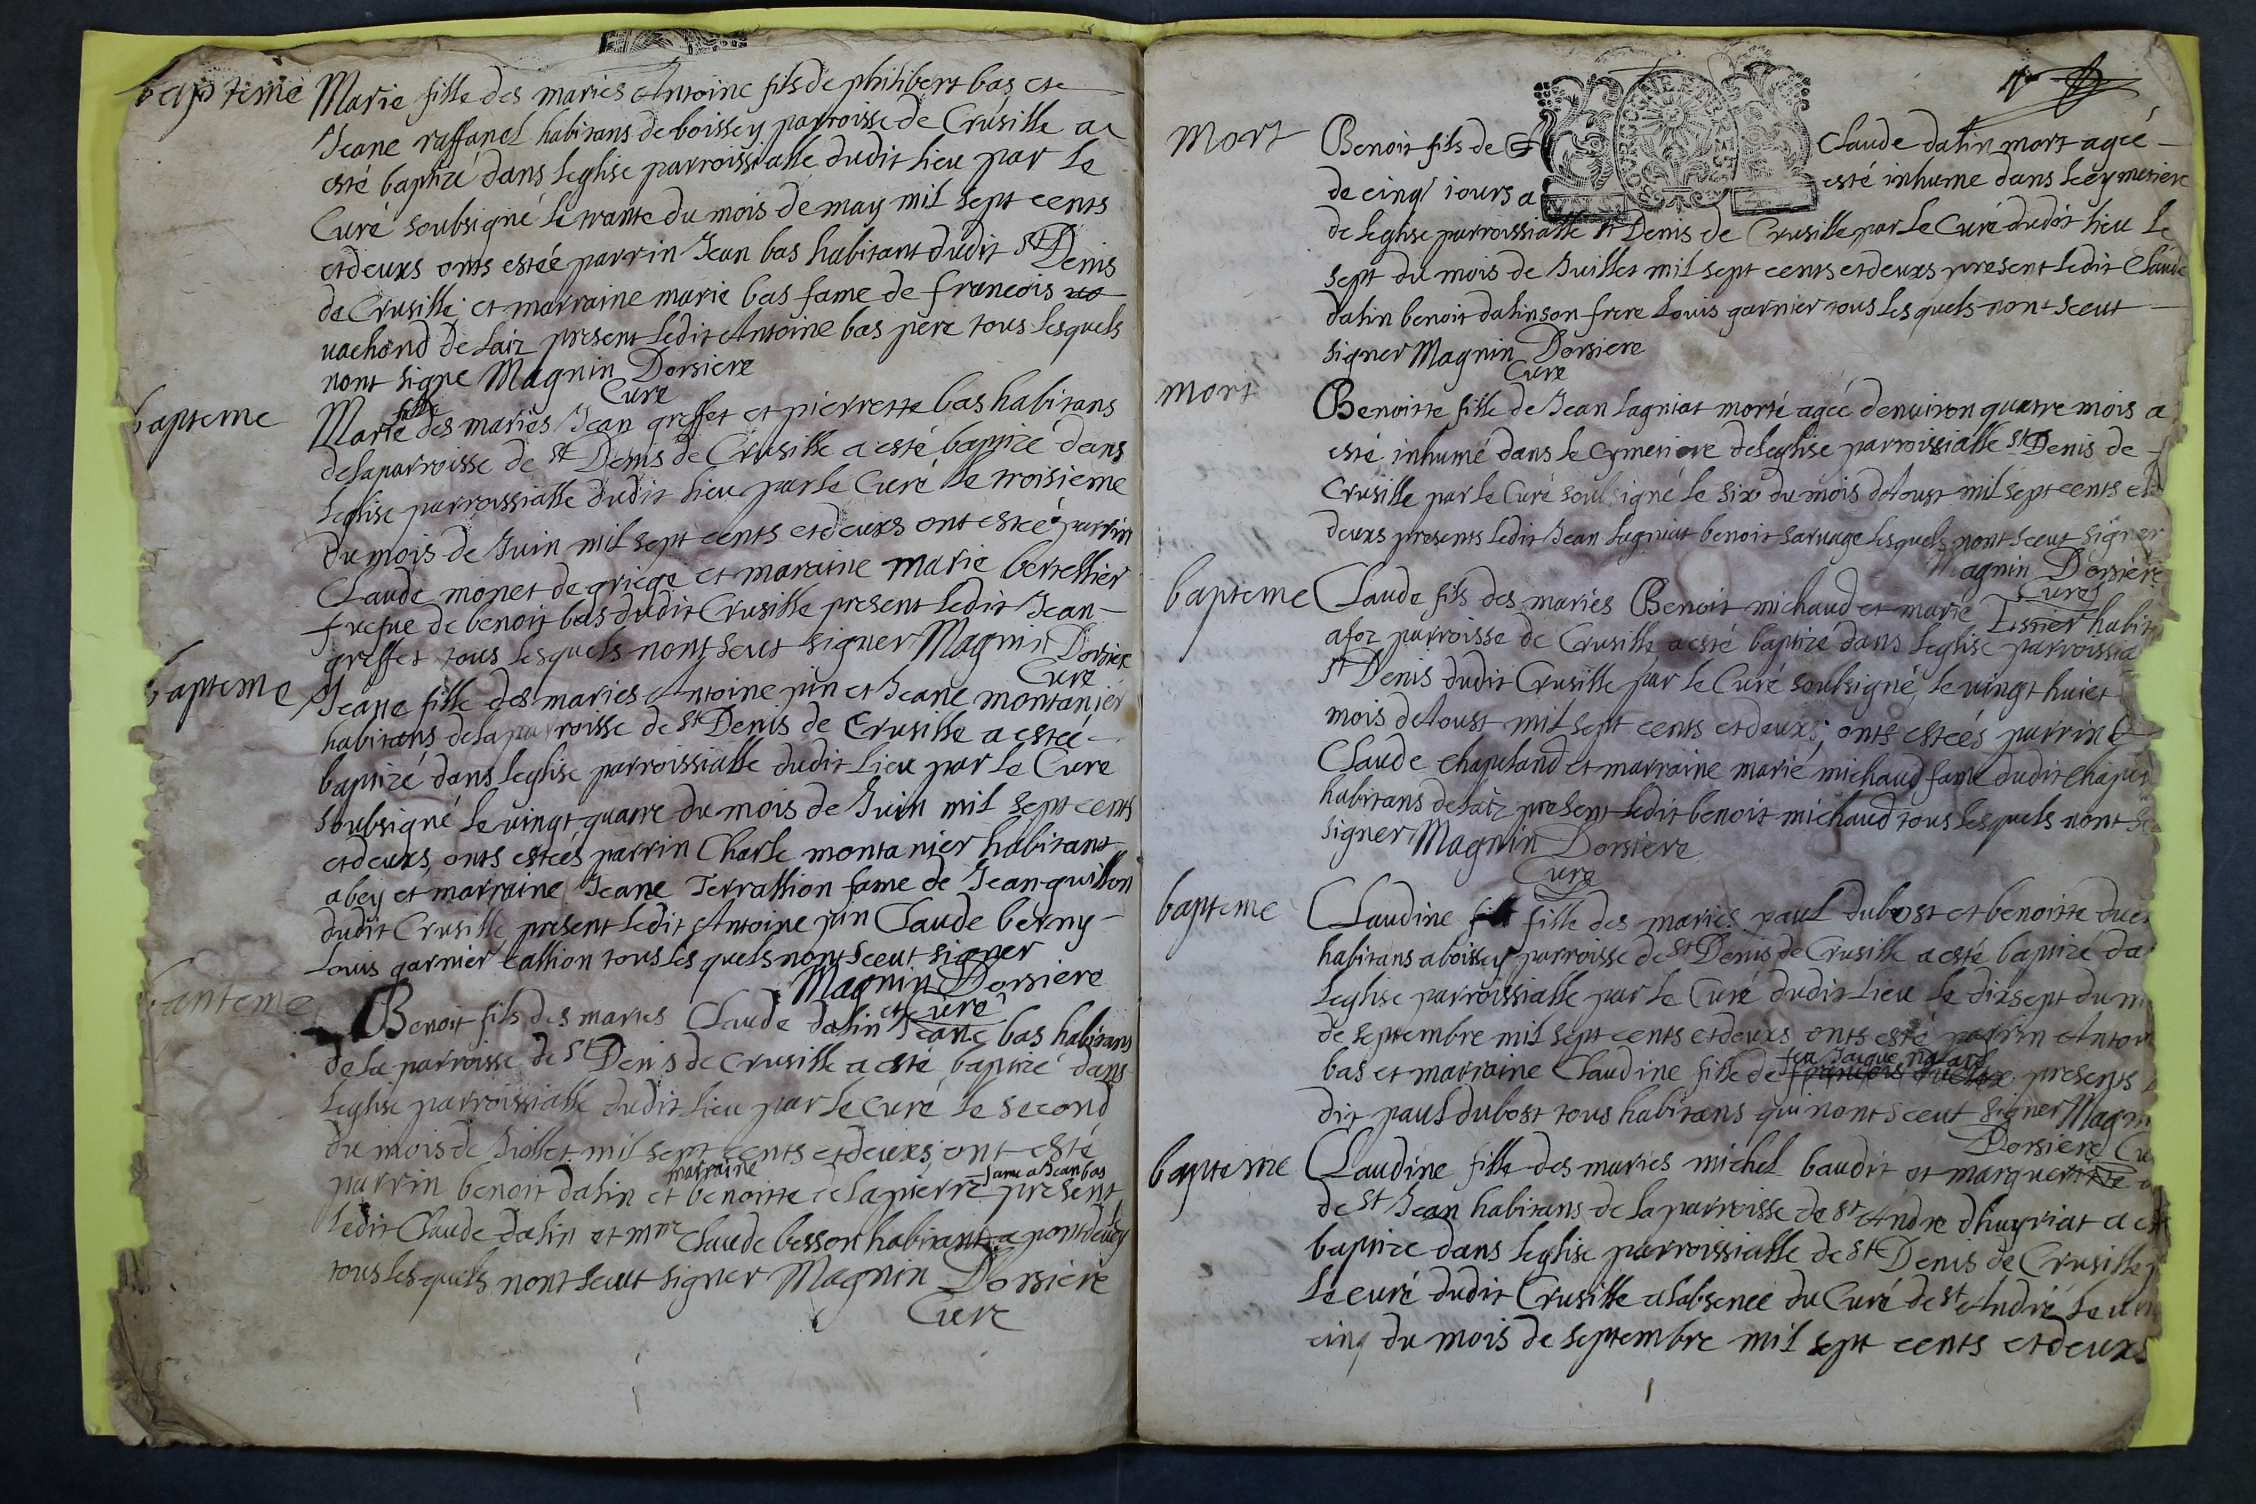 bapteme
Marie fille des mariés Antoine fils de philibert bas et
Jeane raffanel habitans de boissey parroisse de Crusille a
esté baptizé dans leglise parroissialle dudit lieu par le
Curé soubsigné le trante du mois de may mil sept cents
et deuxs onts estéé parrin Jean bas habitant dudit St Denis
de Crusille et marraine marie bas fame de francois
vachond de laiz present ledit Antoine bas pere tous lesquels
nont signe Magnin Dorsiere
Curé
bapteme
Marie fille des mariés Jean greffet et pierrette bas habitans
de la parroisse de St Denis de Crusille a esté baptizé dans
leglise parroissialle dudit lieu par le Curé le troisieme
du mois de Juin mil sept cents et deuxs ont estéé parrin
Claude monet de griege et maraine marie bertellier
fuefue de benoit bas dudit Crusille present ledit Jean
greffet tous lesquels nont seut signer Magnin Dorsiere
Curé
bapteme
Jeane fille des mariés Antoine pin et Jeane montanier
habitans de la parroisse de St Denis de Crusille a estéé
baptizé dans leglise parroissialle dudit lieu par le Curé
soubsigné le vingt quatre du mois de Juin mil sept cents
et deuxs onts estéés parrin Charle montanier habitant
a bey et marraine Jeane Terrallion fame de Jean guillon
dudit Crusille present ledit Antoine pin Claude berny
Louis garnier tallion tous lesquels nont sceut signer
Magnin Dorsiere
Curé
bapteme
Benoit fils des maries Claude dalin et Jeane bas habitans
de la parroisse de St Denis de Crusille a esté baptizé dans
leglise parroissialle dudit lieu par le Curé le second
du mois de Juillet mil sept cents et deuxs ont esté
parrin benoit dalin et marraine benoitte delapierre fame a Jean bas present
ledit Claude dalin et mre Claude besson habitant a pontdevey
tous lesquels nont seut signer Magnin Dorsiere
Cure
mort
Benoit fils de Claude dalin mort agéé
de cinq iours a esté inhume dans le cymetiere
de leglise parroissialle St Denis de Crusille par le Curé dudit lieu le
sept du mois de Juillet mil sept cents et deuxs present ledit Claude
dalin benoit dalin son frere Louis garnier tous lesquels nont sceut
signer Magnin Dorsiere
Cure
mort
Benoitte fille de Jean lagniat morte agéé denviron quatre mois a
esté inhumé dans le Cymetiere de leglise parroissialle St Denis de
Crusille par le Curé soubsigné le six du mois dAoust mil sept cents et
deuxs presents ledit Jean lagniat benoit sarvage lesquels nont sceut signer
agnin Dorsiere
Curé
bapteme
Claude fils des mariés Benoit michaud et marie Tissier habit
afoz parroisse de Crusille a esté baptizé dans leglise parroissia
St Denis dudit Crusille par le Curé soubsigné le vingt huict
mois dAoust mil sept cents et deuxs onts estéés parrin
Claude chapuland et marraine marie michaud fame dudit Chapu
habitans de laiz present ledit benoit michaud tous lesquels nont
signer Magnin Dorsiere
Cure
bapteme
Claudine fille des mariés paul dubost et benoitte
habitans a boissey parroisse de St Denis de Crusille a esté baptizé da
leglise parroissialle par le Curé dudit lieu le dixsept du m
de septembre mil sept cents et deuxs onts esté parrin Antoi
bas et marraine Claudine fille de feu Jacque pivard presents
dit paul dubost tous habitans qui nont sceut signer Magn
Dorsiere Cu
bapteme
Claudine fille des mariés michel baudit et marguerite
de St Jean habitans de la parroisse de St Andre dhuyriat a e
baptizé dans leglise parroissialle de St Denis de Crusille
le curé dudit Crusille a labsence du Curé de St André le vin
cinq du mois de septembre mil sept cents et deuxs